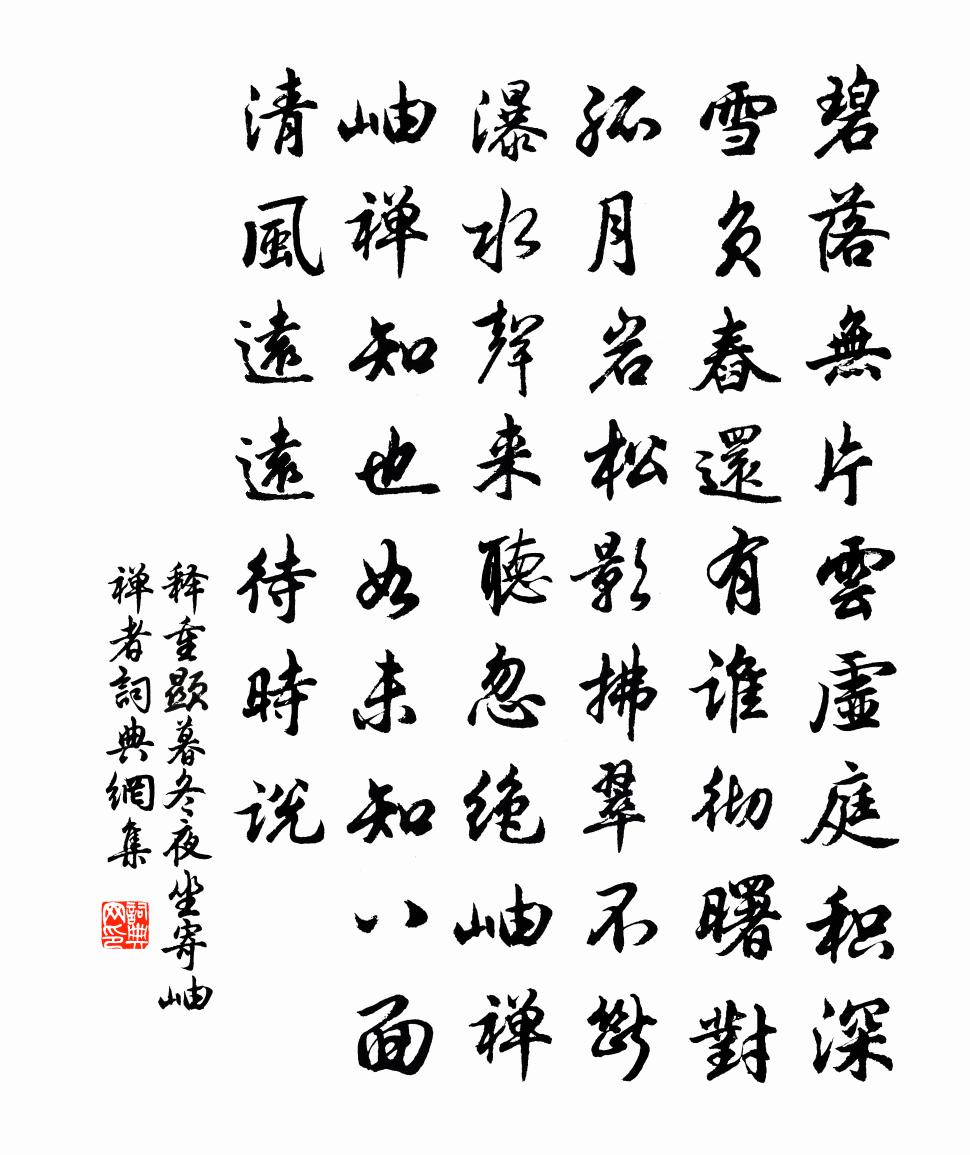 碧落無片雲虛庭积深
雪負舂還有谁彻曙對
孤月岩松影拂翠不斷
瀑水聲来聽忽绝岫禅
岫禅知也如未知八面
清風遠遠待時说
释重顕暮冬夜坐寄岫
禅者詞典網集
詞典
网印